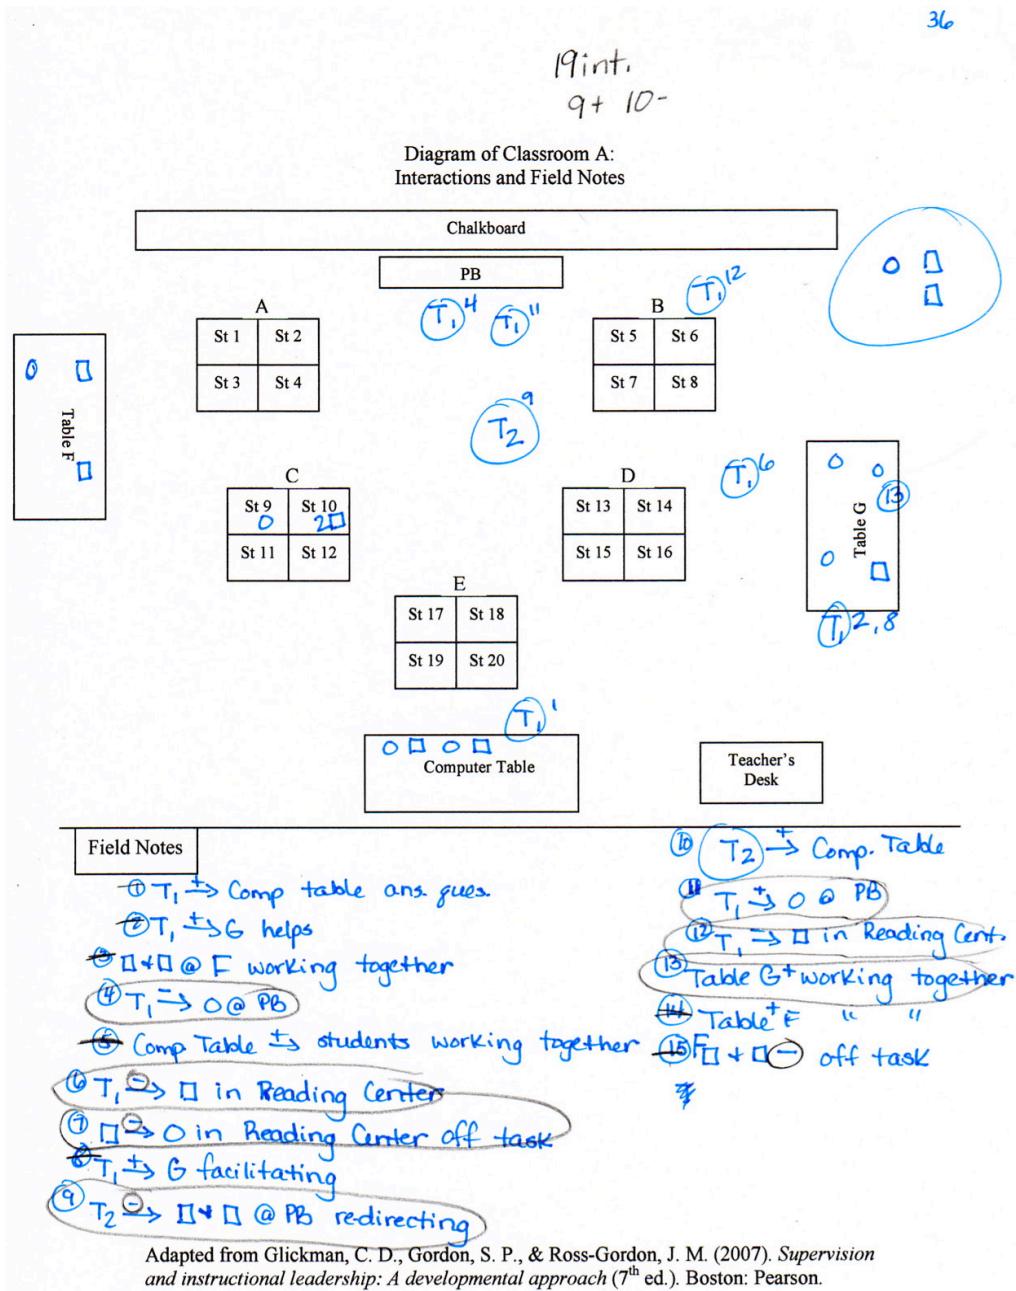 36
19int.
9+ 10-
Diagram of Classroom A:
Interactions and Field Notes
Chalkboard
PB
T₁ 4
T₁ 11
T₁ 12
A
St 1 St 2
St 3 St 4
B
St 5 St 6
St 7 St 8
Table F
T₂ 9
C
St 9 St 10
2
St 11 St 12
D
St 13 St 14
St 15 St 16
T₁ 6
Table G
13
T₁ 2,8
E
St 17 St 18
St 19 St 20
T₁ 1
Computer Table
Teacher's
Desk
Field Notes
① T₁ +→ Comp table ans. ques.
② T₁ +→ G helps
③ □+□ @ F working together
④ T₁ -→ O @ PB
⑤ Comp Table +→ students working together
⑥ T₁ -→ □ in Reading Center
⑦ □ -→ O in Reading Center off task
8 T₁ +→ G facilitating
⑨ T₂ -→ □+□ @ PB redirecting
⑩ T₂ +→ Comp. Table
⑪ T₁ +→ O @ PB
⑫ T₁ -→ □ in Reading Cent.
⑬ Table G+ working together
⑭ Table+ F " "
⑮ F□ + □ - off task
Adapted from Glickman, C. D., Gordon, S. P., & Ross-Gordon, J. M. (2007). Supervision
and instructional leadership: A developmental approach (7th ed.). Boston: Pearson.